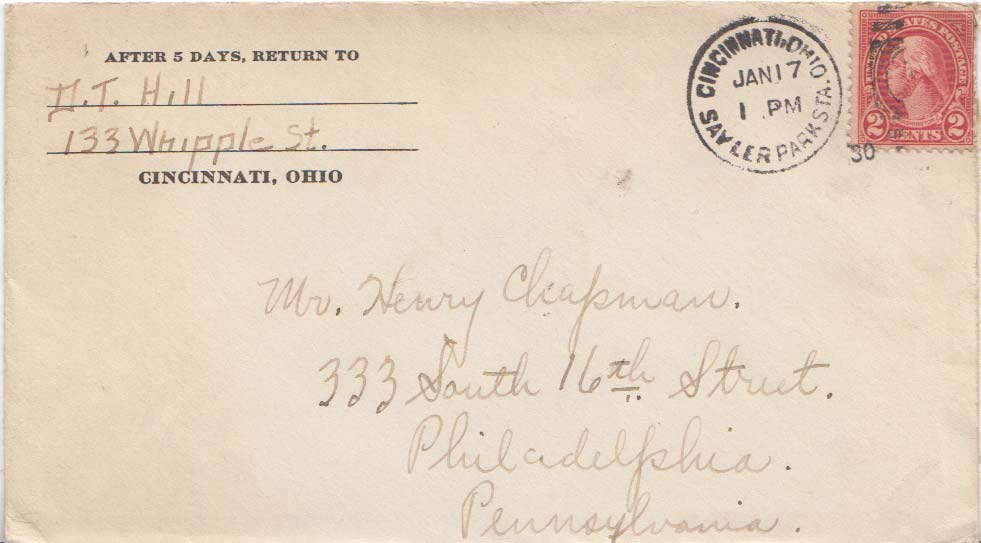 AFTER 5 DAYS, RETURN TO
D.T. Hill
133 Whipple St.
CINCINNATI, OHIO
CINCINNATI, OHIO.
JAN 17
1 PM
SAYLER PARK STA.
30
UNITED STATES POSTAGE
2 CENTS 2
Mr. Henry Chapman.
333 South 16th Street.
Philadelphia.
Pennsylvania.